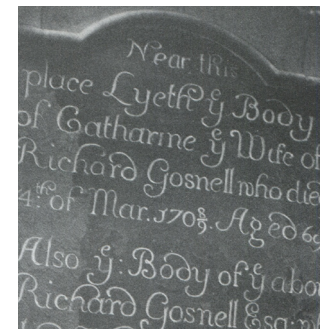 Near this
place Lyeth yͤ Body
of Catharine yͤ Wife of
Richard Gosnell who died
4.th of Mar. 1708/9. Aged 69
Also yͤ: Body of yͤ abov
Richard Gosnell Esq: